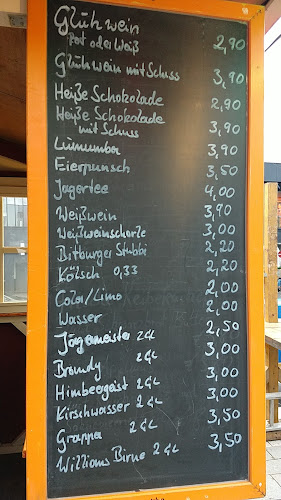 Glühwein
Rot oder Weiß 2,90
Glühwein mit Schuss 3,90
Heiße Schokolade 2,90
Heiße Schokolade
mit Schuss 3,90
Lumumba 3,90
Eierpunsch 3,50
Jagertee 4,00
Weißwein 3,90
Weißweinschorle 3,00
Bitburger Stubbi 2,20
Kölsch 0,33 2,20
Cola/Limo 2,00
Wasser 2,00
Jägermeister 2 cl 2,50
Brandy 2 cl 3,00
Himbeergeist 2 cl 3,00
Kirschwasser 2 cl 3,00
Grappa 2 cl 3,50
Williams Birne 2 cl 3,50